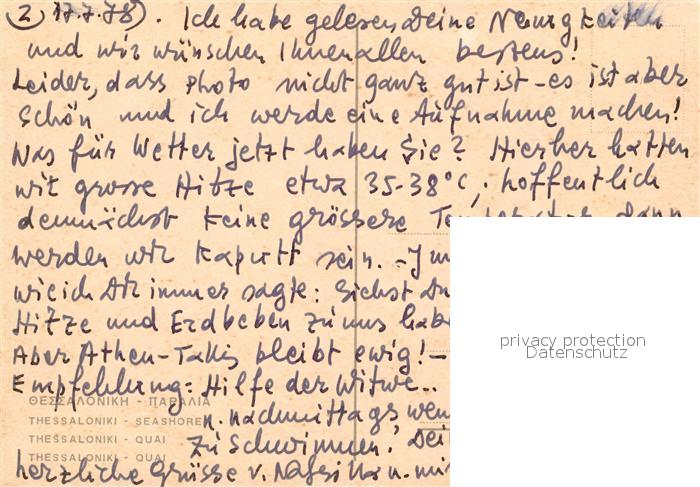 2) 17.7.78). Ich habe gelesen Deine Neuigkeiten
und wir wünschen Ihnen allen bestens!
Leider, dass Photo nicht ganz gut ist - es ist aber
schön und ich werde eine Aufnahme machen!
Was für Wetter jetzt haben Sie? Hierher hatten
wir grosse Hitze etwa 35-38°C, hoffentlich
demnächst keine grössere dann
werden wir kaputt sein. -
wie ich Dir immer sagte: Siehst Du
Hitze und Erdbeben zu uns
Aber Athen-Takis bleibt ewig! -
Empfehlung: Hilfe der Witwe..
ΘΕΣΣΑΛΟΝΙΚΗ - ΠΑΡΑΛΙΑ
n. nachmittags,
THESSALONIKI - SEASHORE
THESSALONIKI - QUAI
zu schwimmen.
THESSALONIKI - QUAI
herzliche Grüsse v.
privacy protection
Datenschutz